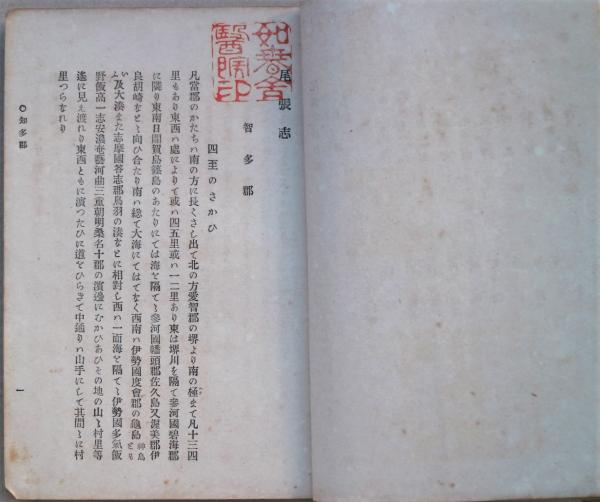 尾張志
智多郡
四至のさかひ
凡當郡のかたちハ南の方に長くさし出て北の方愛智郡の堺より南の極まて凡十三四
里もあり東西ハ處によりて或ハ四五里或ハ一二里あり東は堺川を隔て參河國碧海郡
に隣り東南日間賀島篠島のあたりにては海を隔てゝ參河國幡頭郡佐久島又渥美郡伊
良胡崎なとゝ向ひ合たり南ハ總て大海にてはてなく西南ハ伊勢國度會郡の龜島神島とも
いふ及大湊また志摩國答志郡鳥羽の湊なとに相對し西ハ一面海を隔てゝ伊勢國多氣飯
野飯高一志安濃奄藝河曲三重朝明桑名十郡の濱邊にむかひあひその地の山々村里等
遙に見え渡れり東西ともに濱つたひに道をひらきて中通りハ山手にして其間々に村
里つらなれり
〇知多郡
一